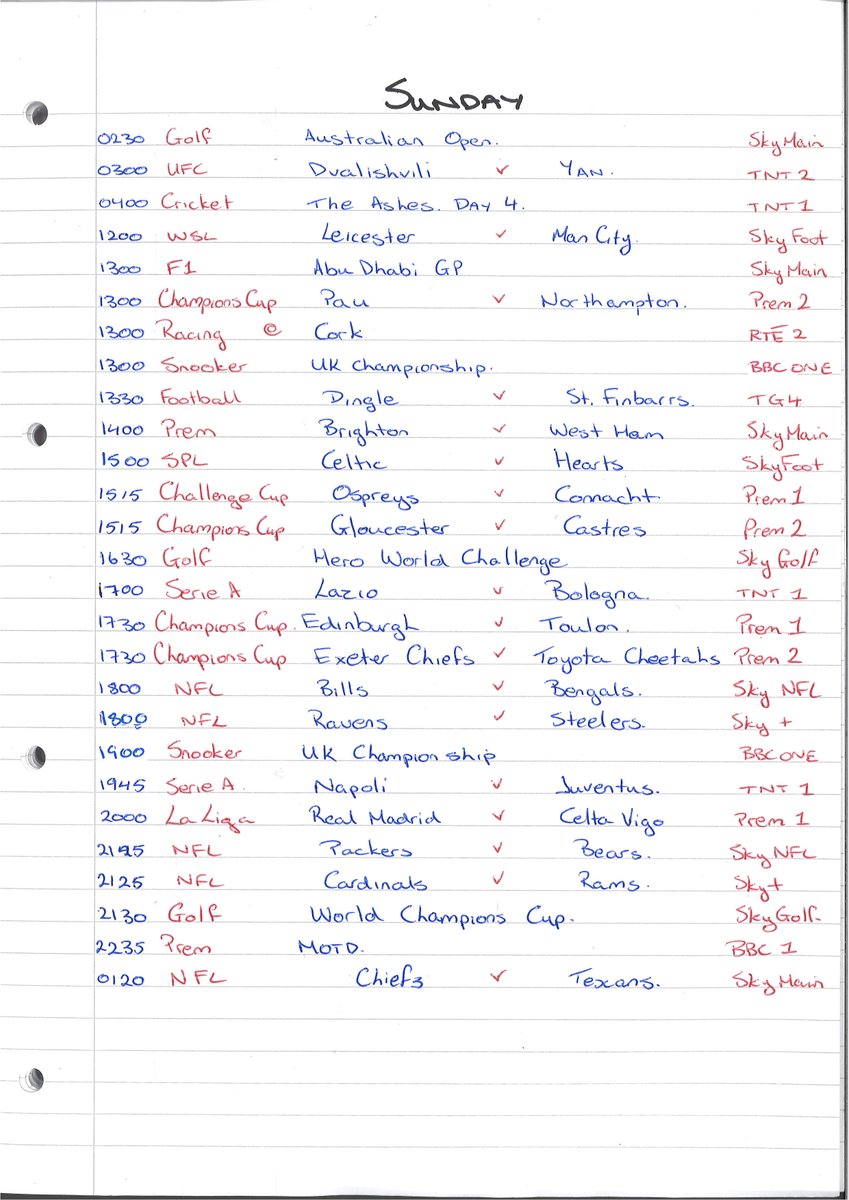 SUNDAY
0230 Golf Australian Open. Sky Main
0300 UFC Dvalishvili v YAN. TNT 2
0400 Cricket The Ashes. DAY 4. TNT 1
1200 WSL Leicester v Man City. Sky Foot
1300 F1 Abu Dhabi GP Sky Main
1300 Champions Cup Pau v Northampton. Prem 2
1300 Racing @ Cork RTÉ 2
1300 Snooker UK Championship. BBC ONE
1330 Football Dingle v St. Finbarrs. TG4
1400 Prem Brighton v West Ham Sky Main
1500 SPL Celtic v Hearts Sky Foot
1515 Challenge Cup Ospreys v Connacht. Prem 1
1515 Champions Cup Gloucester v Castres Prem 2
1630 Golf Hero World Challenge Sky Golf
1700 Serie A Lazio v Bologna. TNT 1
1730 Champions Cup. Edinburgh v Toulon. Prem 1
1730 Champions Cup Exeter Chiefs v Toyota Cheetahs Prem 2
1800 NFL Bills v Bengals. Sky NFL
1800 NFL Ravens v Steelers. Sky +
1900 Snooker UK Championship BBC ONE
1945 Serie A. Napoli v Juventus. TNT 1
2000 La Liga Real Madrid v Celta Vigo Prem 1
2125 NFL Packers v Bears. Sky NFL
2125 NFL Cardinals v Rams. Sky +
2130 Golf World Champions Cup. Sky Golf.
2235 Prem MOTD. BBC 1
0120 NFL Chiefs v Texans. Sky Main